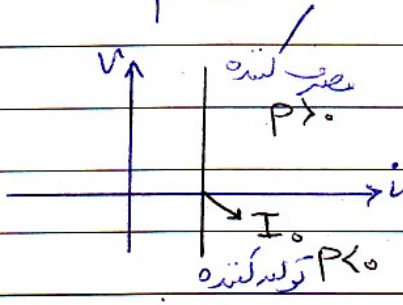 V
مصرف کننده
P>0
i
I₀
تولید کننده P<0